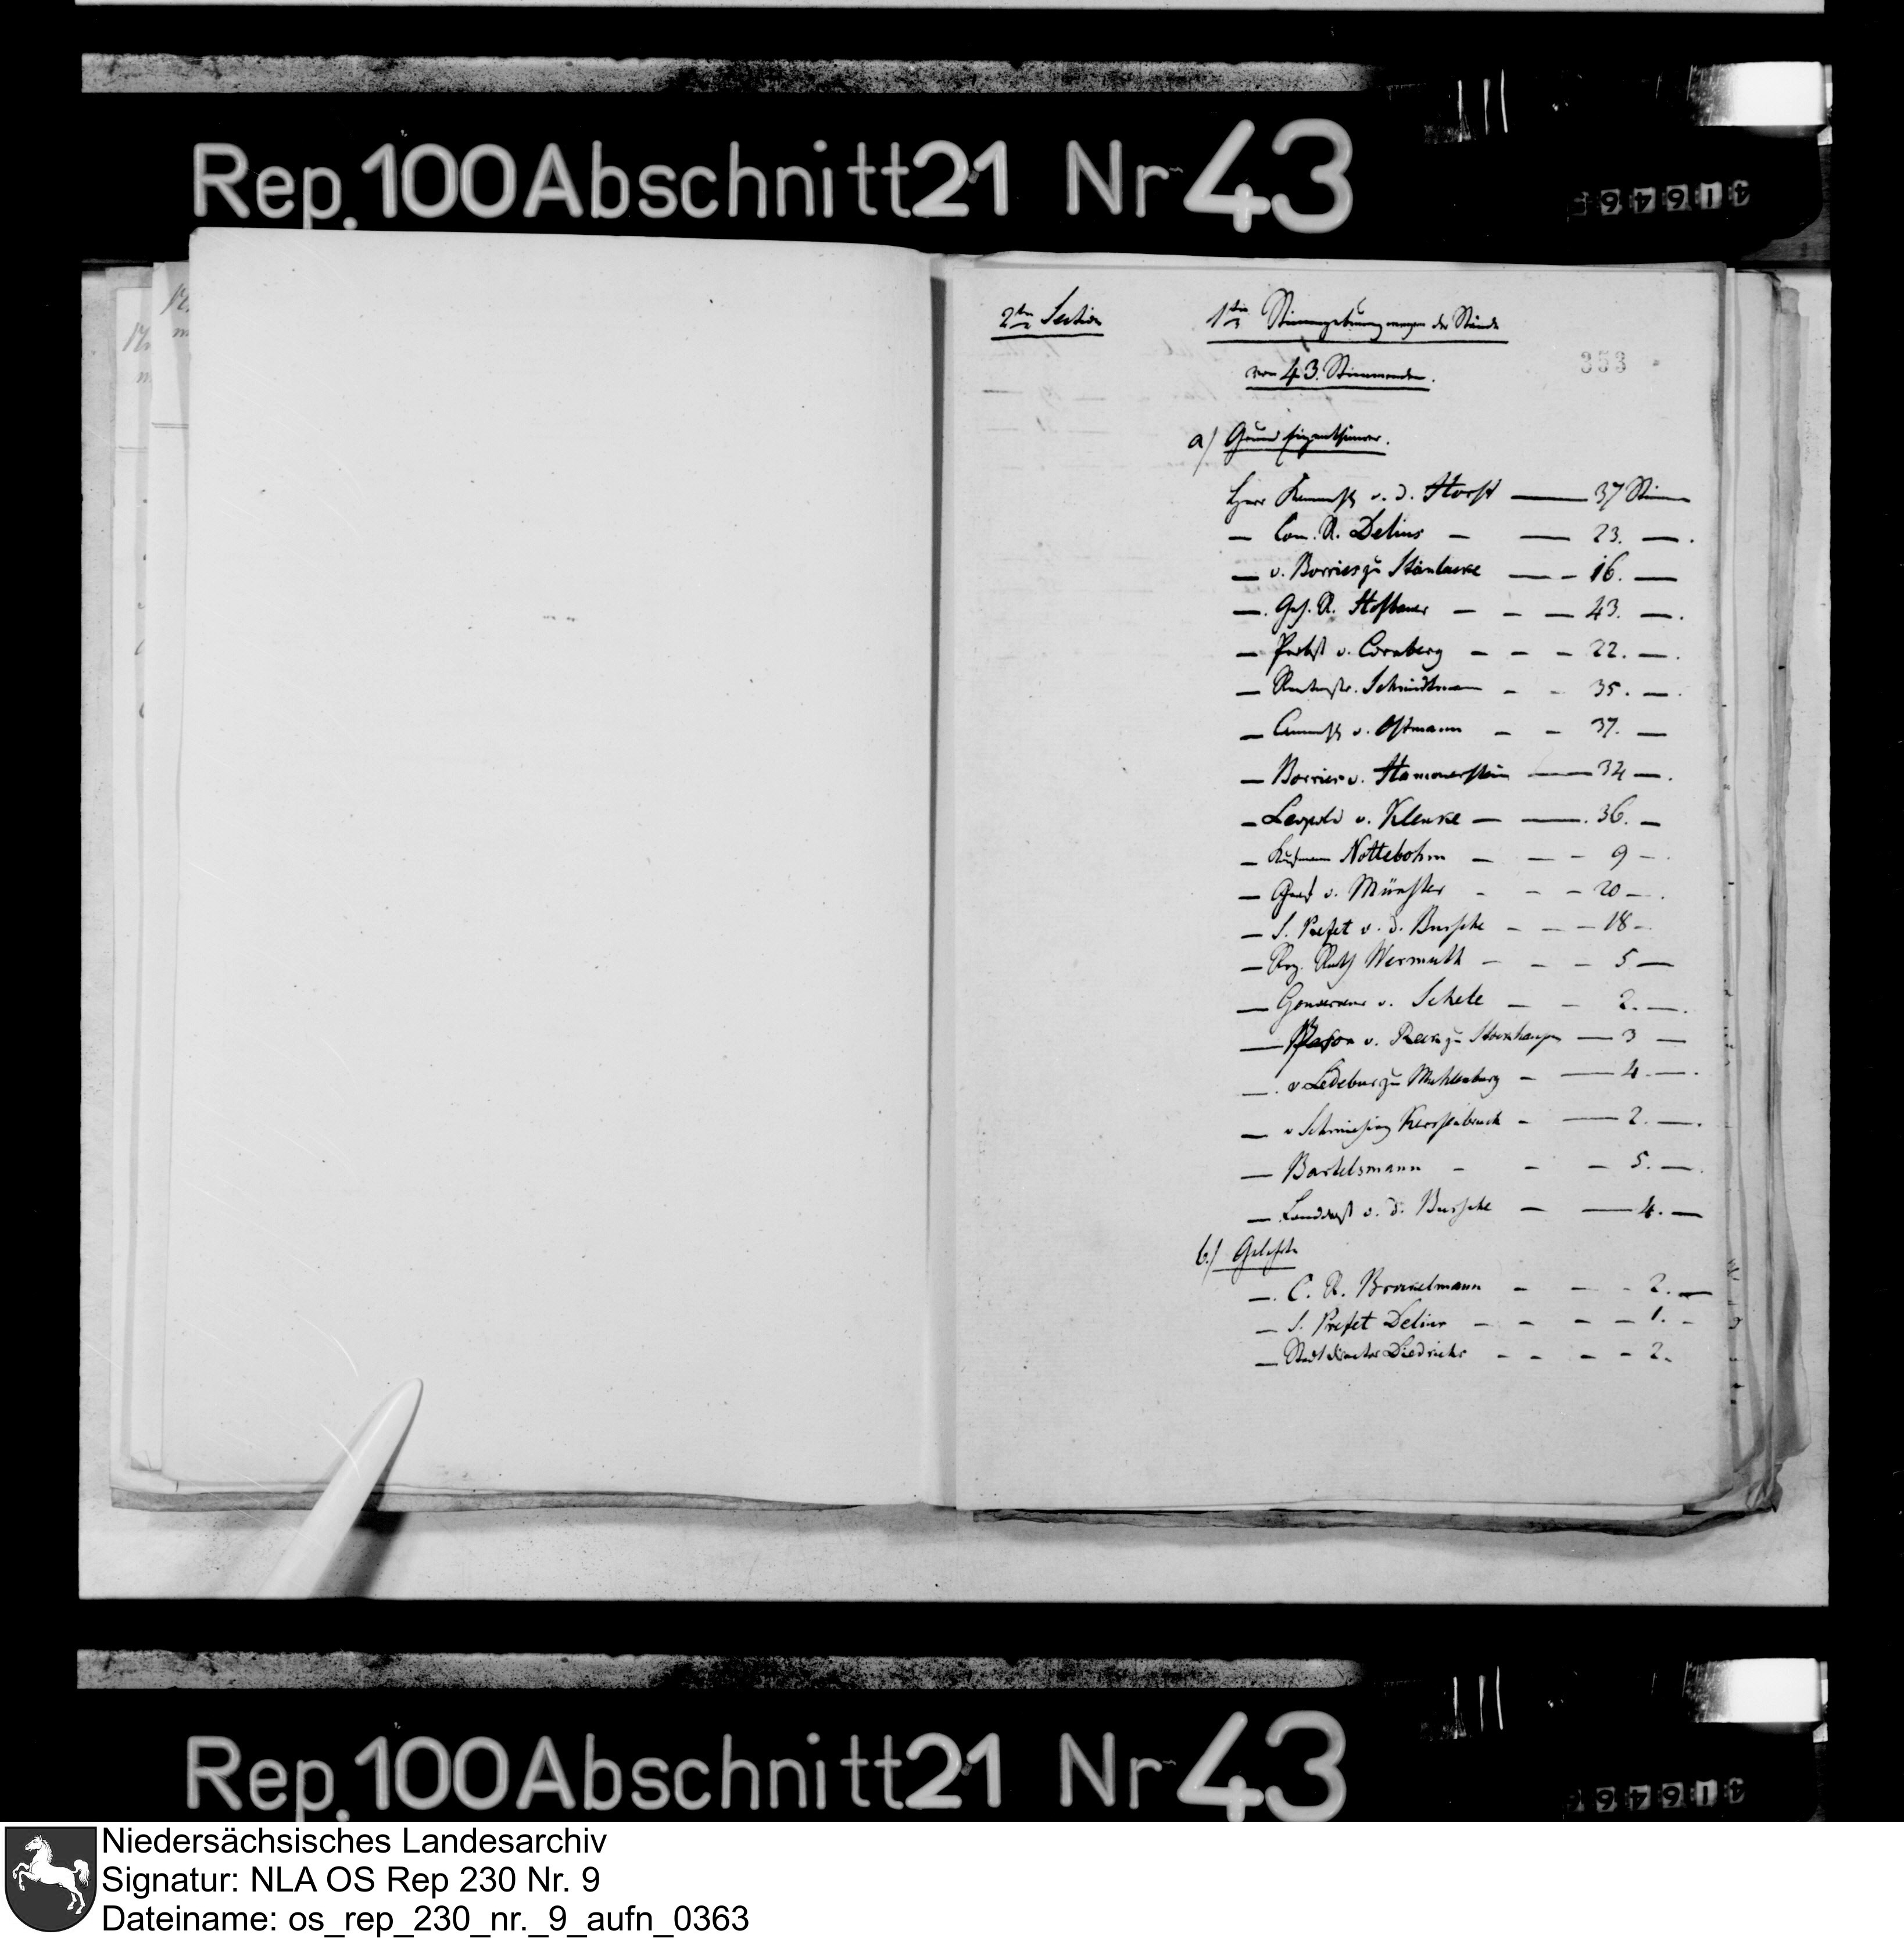 Rep.100Abschnitt21 Nr 43
41646
2te Section
1te Stimmgebung wegen der Stände
353
von 43. Stimmenden.
a) Grund Eigenthümer.
Herr v. d. Horst — 37 Stimm
— Con. R. Delius — — 23. —.
— v. Borries zu Steinlacke — — 16. —
—. Geh. R. Hofbauer — — — 43. —.
— Probst v. Cornberg — — — 22. —.
— Rentmstr. Schmidtmann — — 35. —.
— v. Ostmann — — 37. —
— Borries v. Hammerstein — 34 —.
— Leopold v. Klencke — —. 36. —
— Kaufmann Nottebohm — — — 9 —.
— Graf v. Münster — — — 20 —.
— S. Prefet v. d. Bussche — — — 18 —
— Reg. Rath Wermuth — — — 5 —
— Gouverneur v. Schele — — 2. —.
— v. Reck zu Stockhausen — 3 —
—. v Ledebur zu Muhlenburg — — 4. —.
— v Schmiesing Kerssenbrock — — 2. —.
— Bartelsmann — — — 5. —.
—. Landdrost v. d. Bussche — — 4. —
b.) Gelehrte
—. C. R. Brockelmann — — — 2. —
— S. Prefet Delius — — — — 1. —
— Stadtdirector Diedrichs — — — — 2.
Rep.100Abschnitt21 Nr 43
41646
Niedersächsisches Landesarchiv
Signatur: NLA OS Rep 230 Nr. 9
Dateiname: os_rep_230_nr._9_aufn_0363